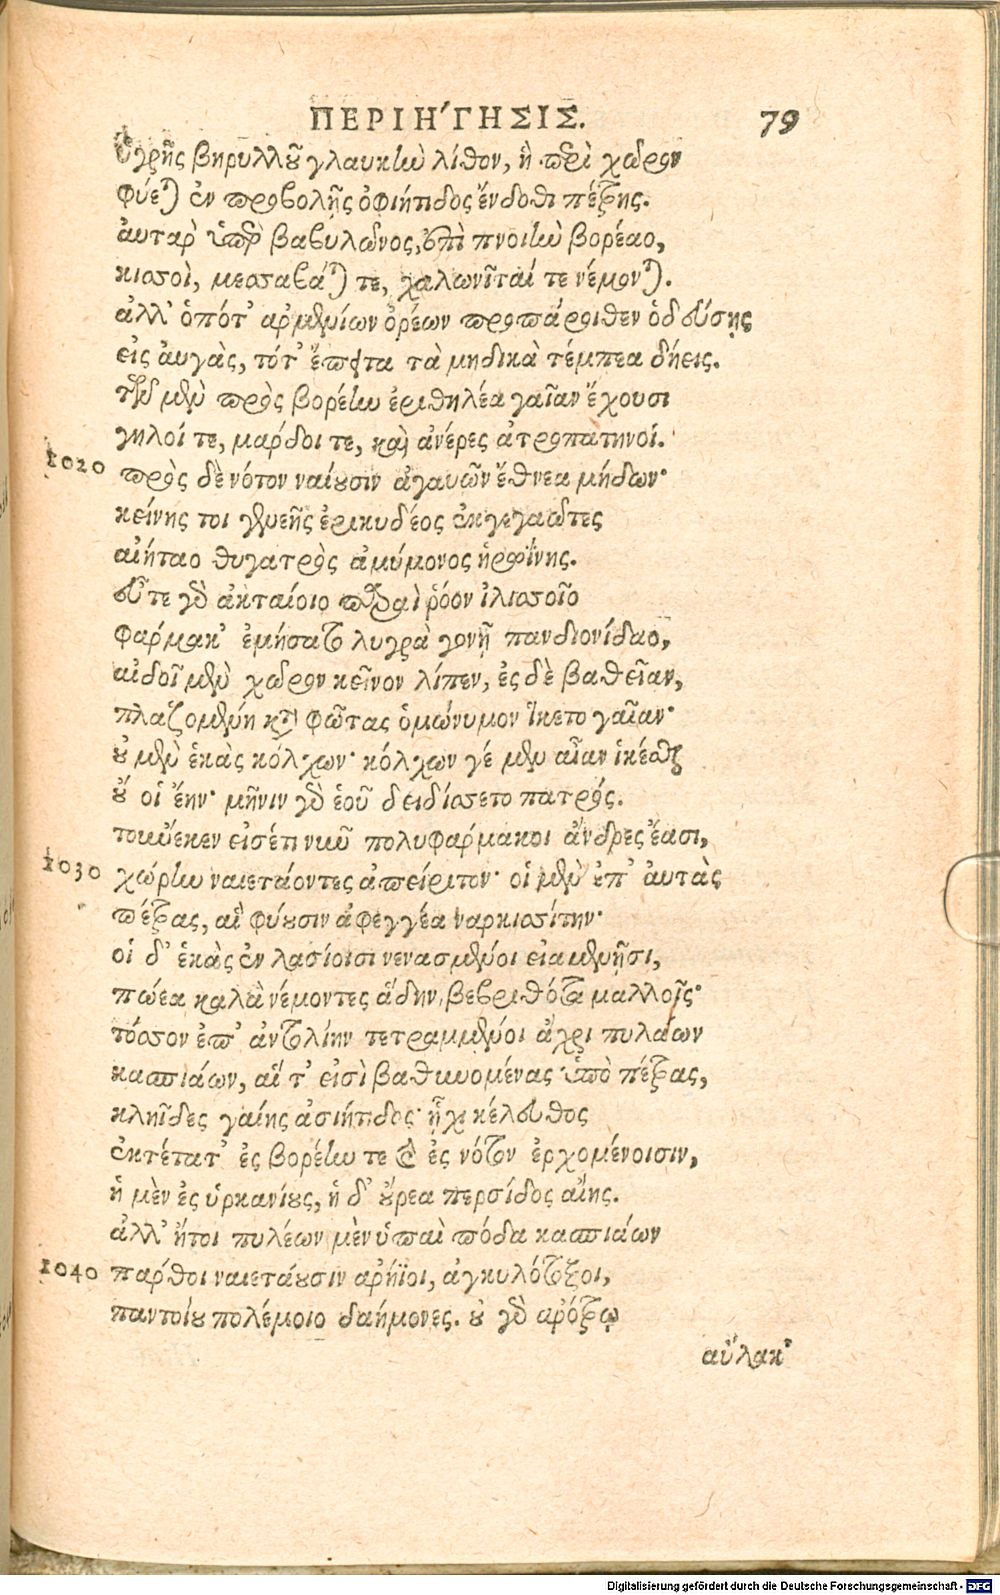 ΠΕΡΙΗΓΗΣΙΣ. 79
ὑγρῆς βηρύλλου γλαυκὴν λίθον, ἣ περὶ χῶρον
φύεται ἐν προβολῆς ὀφιήτιδος ἔνδοθι πέτρης.
ἀυταρ ὑπὲρ βαβυλῶνος, ἐπὶ πνοιὴν βορέαο,
κισσοὶ, μεσσαβάται τε, χαλωνῖταί τε νέμονται.
ἀλλ' ὁπότ' αρμενίων ὀρέων προπάροιθεν ὁδεύσῃς
εἰς ἀυγὰς, τότ' ἔπειτα τὰ μηδικὰ τέμπεα δήεις.
τῶν μὲν πρὸς βορέην ἐριθηλέα γαῖαν ἔχουσι
γηλοί τε, μαρδοι τε, καὶ ἀνέρες ἀτροπατηνοί.
1020 πρὸς δὲ νότον ναίουσιν ἀγαυῶν ἔθνεα μήδων·
κείνης τοι γενεῆς ἐρικυδέος ἐκγεγαῶτες
αἰήταο θυγατρὸς ἀμύμονος ἡρωΐνης.
εὖτε γὰρ ἀκταίοιο παραὶ ῥόον ἰλισσοῖο
φαρμακ' ἐμήσατο λυγρὰ γονῇ πανδιονίδαο,
αἰδοῖ μὲν χῶρον κεῖνον λίπεν, ἐς δὲ βαθεῖαν,
πλαζομένη κατὰ φῶτας ὁμώνυμον ἵκετο γαῖαν·
οὐ μὲν ἑκὰς κόλχων· κόλχων γέ μεν αἶαν ἱκέσθαι
οὔ οἱ ἔην· μῆνιν γὰρ ἑοῦ δειδίσσετο πατρός.
τοὔνεκεν εἰσέτι νῦν πολυφαρμακοι ἄνδρες ἔασι,
1030 χώρην ναιετάοντες ἀπείριτον· οἱ μὲν ἐπ' ἀυτὰς
πέτρας, αἳ φύουσιν ἀφεγγέα ναρκισσίτην·
οἱ δ' ἑκὰς ἐν λασίοισι νενασμένοι εἱαμενῆσι,
πώεα καλὰ νέμοντες ἅδην, βεβριθότα μαλλοῖς·
τόσσον ἐπ' ἀντολίην τετραμμένοι ἄχρι πυλάων
κασπιάων, αἵ τ' εἰσὶ βαθυνομένας ὑπὸ πέτρας,
κληῖδες γαίης ἀσιήτιδος· ἧχι κέλευθος
ἐκτέτατ' ἐς βορέην τε καὶ ἐς νότον ἐρχομένοισιν,
ἡ μὲν ἐς ὑρκανίους, ἡ δ' οὔρεα περσίδος αἴης.
ἀλλ' ἤτοι πυλέων μὲν ὑπαὶ πόδα κασπιάων
1040 παρθοι ναιετάουσιν αρήϊοι, ἀγκυλότοξοι,
παντοίου πολέμοιο δαήμονες. οὐ γὰρ αρότρῳ
αὔλακ'